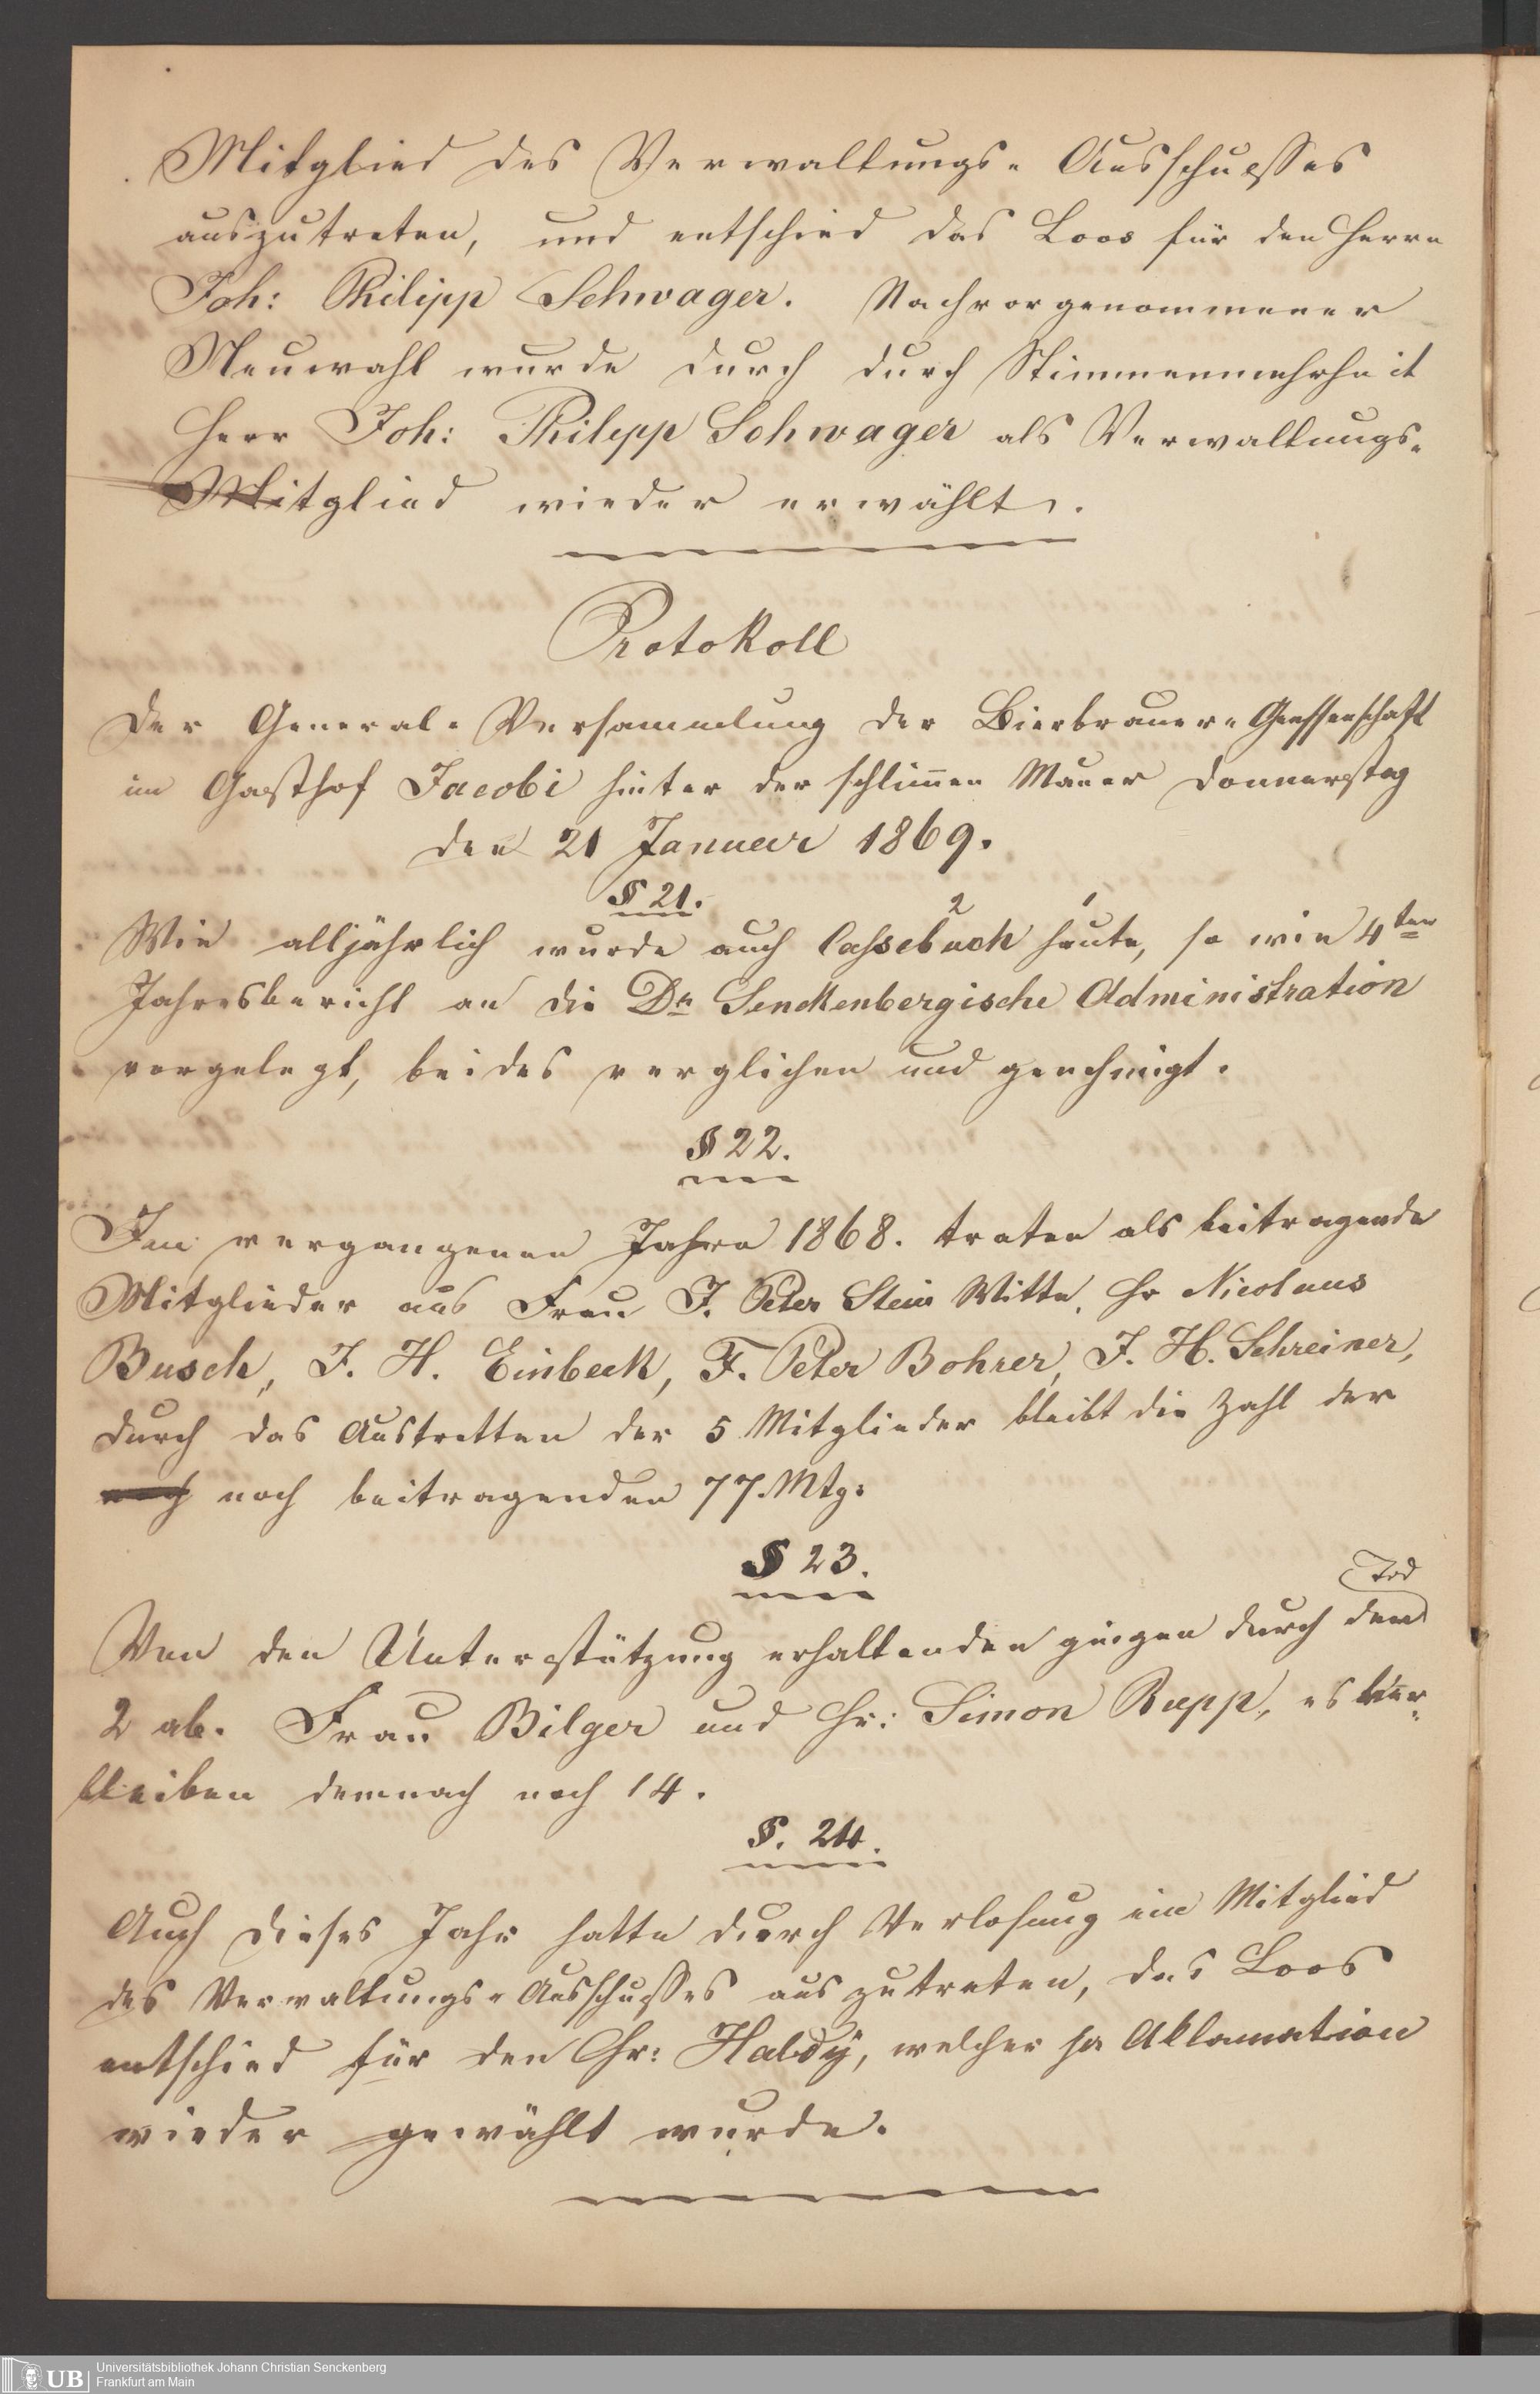 Mitglied des Verwaltungs-Ausschusses
auszutreten, und entschied das Loos für den Herrn
Joh: Philipp Schwager. Nach vorgenommener
Neuwahl wurde durch durch Stimmenmehrheit
Herr Joh: Philipp Schwager als Verwaltungs-
Mitglied wieder erwählt.
Protokoll
Der General-Versammlung der Bierbrauer-Genossenschaft
im Gasthof Jacobi hinter der schlimmen Mauer Donnerstag
den 21 Januar 1869.
§ 21.
2 1
Wie alljährlich wurde auch Cassebuch heute, so wie 4ter
Jahresbericht an die Dr. Senckenbergische Administration
vorgelegt, beides verglichen und genehmigt.
§ 22.
Im vergangenen Jahre 1868. traten als beitragende
Mitglieder aus Frau J. Peter Stein Witte, Hr Nicolaus
Busch, J. H. Einbeck, F. Peter Bohrer, J. H. Schreiner,
durch das Austretten der 5 Mitglieder bleibt die Zahl der
noch noch beitragenden 77. Mtg:
§ 23.
Tod
Von den Unterstützung erhaltenden gingen durch den
2 ab. Frau Bilger und Hr: Simon Rupp, es ver-
bleiben demnach noch 14.
§. 24.
Auch dieses Jahr hatte durch Verlosung ein Mitglied
des Verwaltungs-Ausschusses auszutreten, das Loos
entschied für den Hr: Haldÿ, welcher per Aklamation
wieder gewählt wurde.
UB
Universitätsbibliothek Johann Christian Senckenberg
Frankfurt am Main